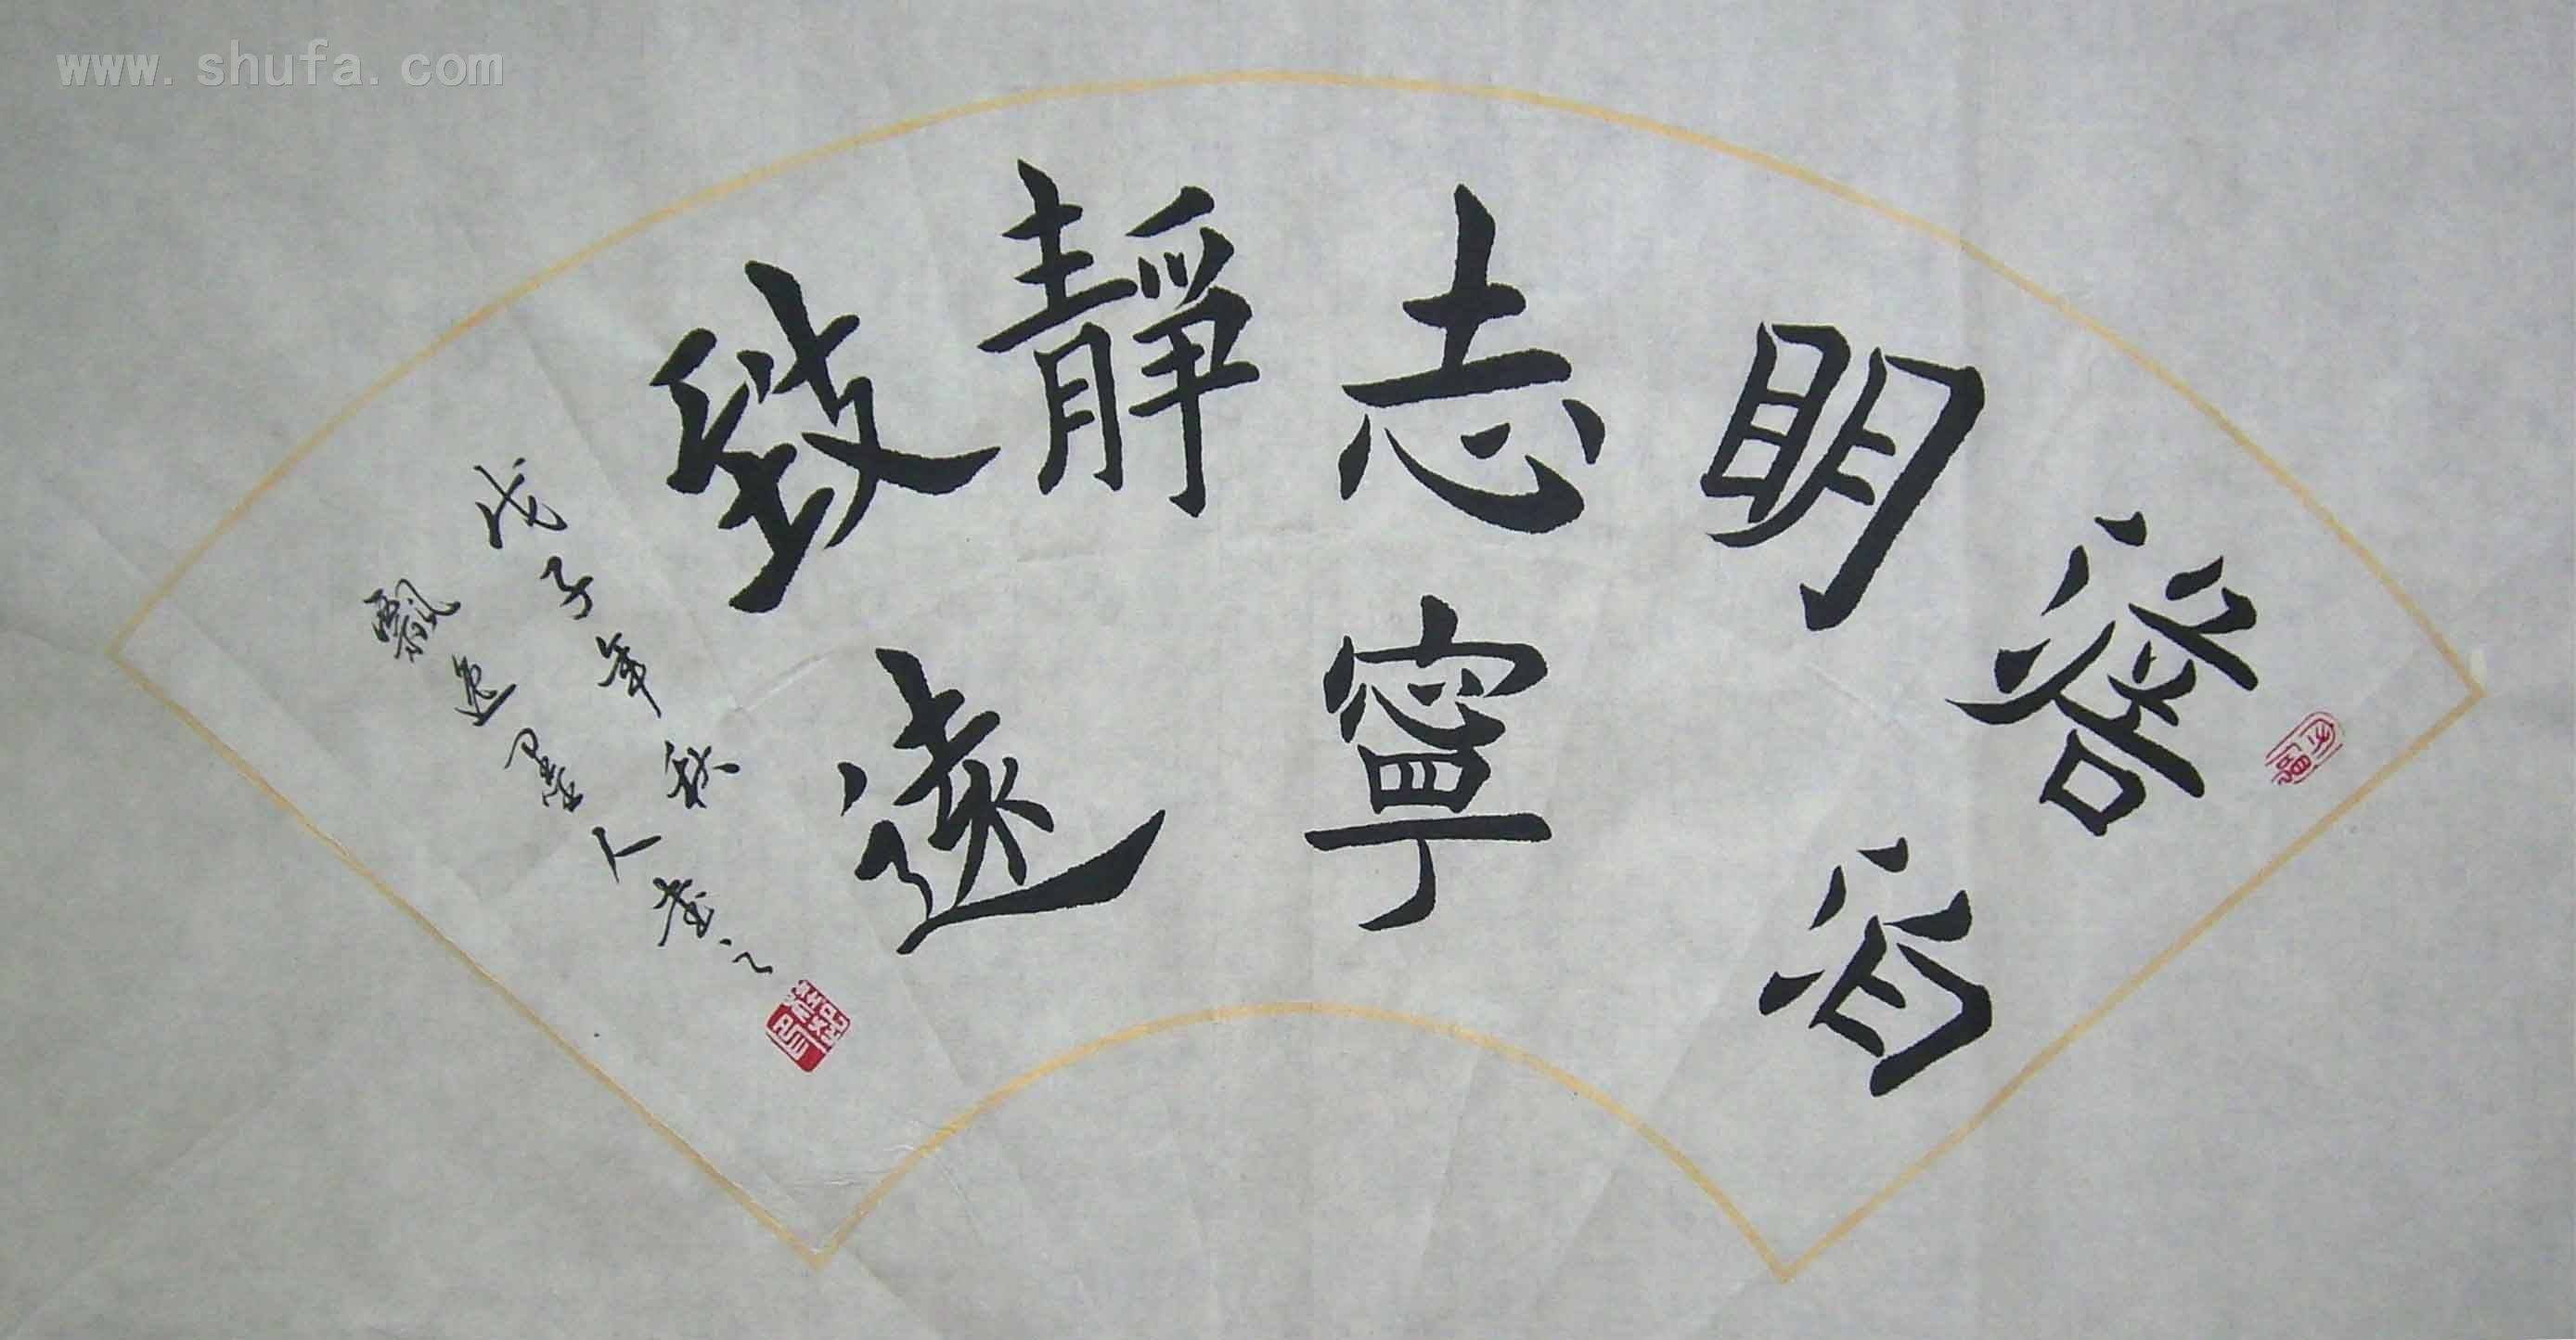 www.shufa.com
澹泊
明
志寧
靜
致遠
戊子年秋
飄逸墨人書之